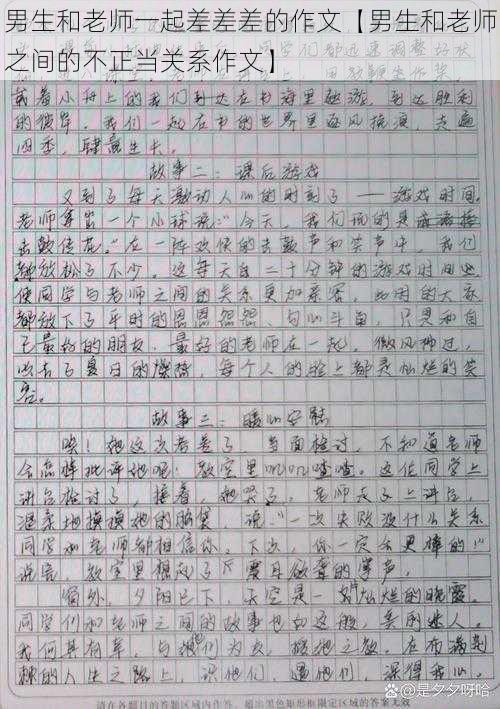 男生和老师一起差差差的作文【男生和老师
之间的不正当关系作文】
载着小舟上的我们到达在书海里遨游,到达胜利
的彼岸。我们一起在书的世界里逐风挽浪,走遍
四季,肆意生长。
故事二:课后游戏
又到了每天激动人心的时刻了——游戏时间。
老师拿出一个小球说:"今天,我们玩的是
击鼓传花。"在一阵欢快的击鼓声和笑声中,我们
都放松了不少。这每天自二十分钟的游戏时间
使同学与老师之间的关系更加亲密,此时的大家
都放下了平时的恩恩怨怨、勾心斗角,只想和自
己最好的朋友,最好的老师在一起。微风拂过,
吹去了夏日的燥热,每个人的脸上都是灿烂的笑
容。
故事三:暖心安慰
唉!她这次考差了,当面检讨,不知道老师
会怎样批评她呢!教室里叽叽喳喳。这位同学上
讲台检讨了,接着,她哭了,老师走上讲台,
温柔地摸摸她的脑袋,说:"一次失败没什么关系
同学和老师都相信你。下次,你一定会更棒的!"
说完,教室里想起了震耳欲聋的掌声。
窗外,夕阳已下,天空是一灿烂的晚霞。
同学们和老师之间的故事也如这般,美丽迷人。
我何其有幸,与他们为友,
的人生之路上,识他们,遇他们,深得我心。
请在各题目的答题区域内作答,超出黑色矩形框限定区域的答案无效
@是夕夕呀哈